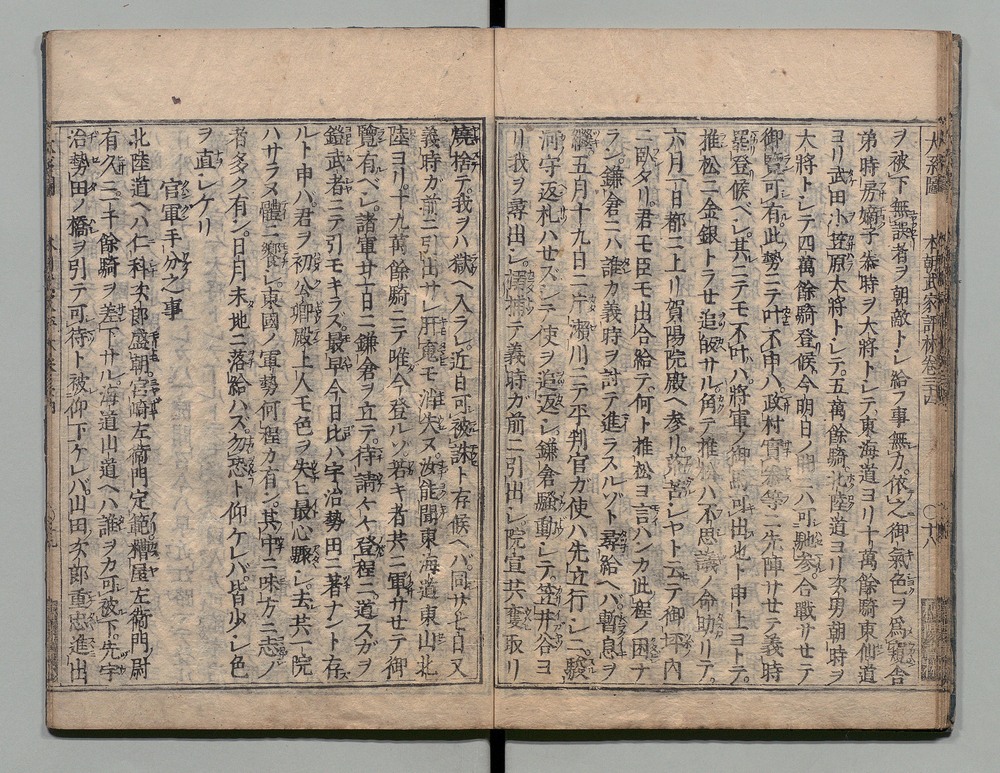 ヲ被下無誤者ヲ朝敵トシ給フ事無力依之御氣色ヲ爲
弟時房嫡子泰時ヲ大將トシテ東海道ヨリ十萬餘騎東仙道
ヨリ武田小笠原大將トシテ五萬餘騎北陸道ヨリ次男朝時ヲ
大將トシテ四萬餘騎登候今明日ノ ハ可馳参合戰サセテ
御 可有此勢ニテ叶不申ハ政村實泰等一先陣サセテ義時
罷登候ベシ其ニテモ不叶ハ將軍ノ御 可出也ト申上ヨトテ
推松ニ金銀トラセ追皈サル角テ推松ハ不思議ノ命助リテ
六月一日都ニ上リ賀陽院殿ヘ参リ 苦シヤト云テ御坪內
ニ臥タリ君モ臣モ出合給テ何ト推松ヨ言ハンカ此程ノ困ナ
ラン鎌倉ニハ誰カ義時ヲ討テ進ラスルゾト尋給ヘバ暫息ヲ
繼五月十九日ニ片瀨川ニテ平判官カ使ハ先立行シニ駿
河守返札ハセズシテ使ヲ追返シ鎌倉騷動シテ笠井谷ヨ
リ我ヲ尋出シ搦捕テ義時カ前ニ引出シ院宣共 取リ
燒捨テ我ヲハ獄ヘ入ラル近日可被誅ト存候ヘバ同廿七日又
義時カ前ニ引出サレ肝魂モ消失ヌ汝能聞東海道東山北
陸ヨリ十九萬餘騎ニテ唯今登ルゾ若キ者共ニ軍サセテ御
覽有ベシ諸軍廿一日ニ鎌倉ヲ立テ待請ケケ登程ニ道スガヲ
鎧武者ニテ引モキラズ最早今日比ハ宇治勢田ニ著ナント存
ルト申ハ君ヲ初 公卿殿上人モ色ヲ失ヒ最心騷シ去共一院
ハサラヌ體ニ饗シ東國ノ軍勢何程カ有ン其中ニ味方ニ志ノ
者タク有ン日月未地ニ落給ハズ勿恐ト仰ケレバ皆少シ色
ヲ直シケリ
官軍手分之事
北陸道ヘハ仁科次郎盛朝宮崎左衛門定範糟屋左衛門尉
有久二千餘騎ヲ差下サル海道山道ヘハ誰ヲカ可被下先宇
治勢田ノ橋ヲ引テ可待ト被仰下ケレバ山田次郎重忠進出
本朝武家評林卷三十四
〇十八